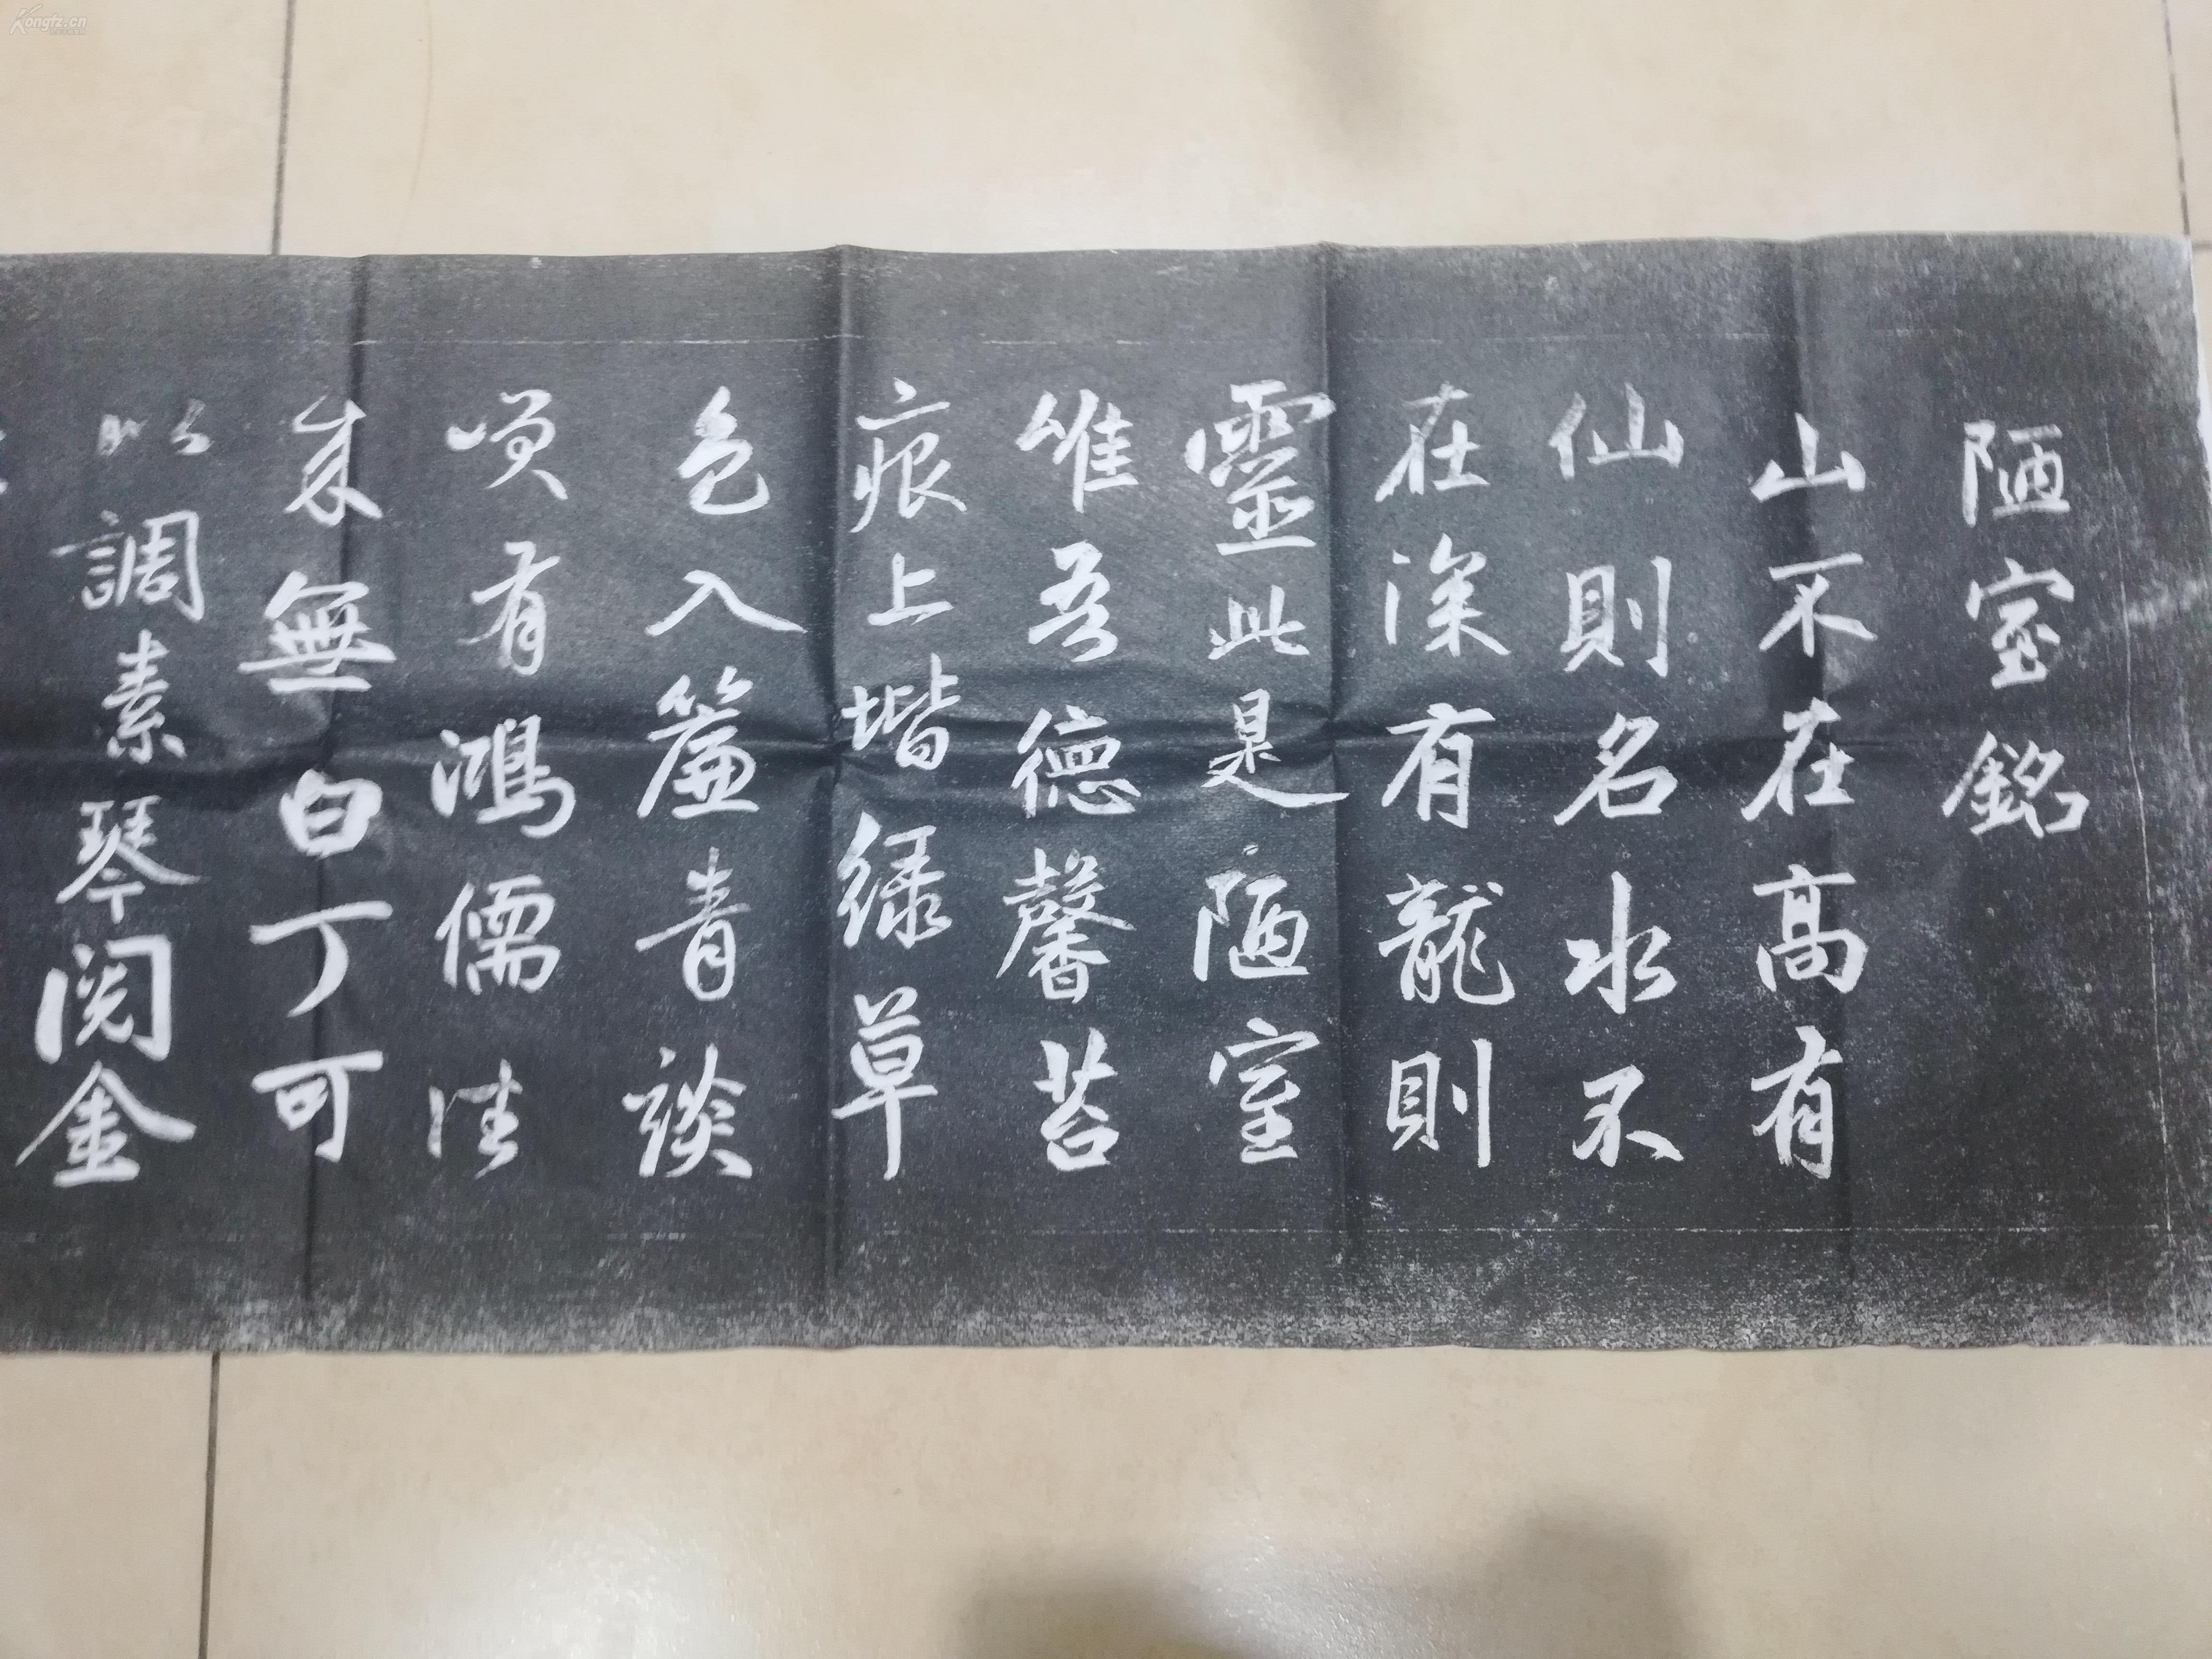 陋室銘
山不在高有
仙則名水不
在深有龍則
靈此是陋室
惟吾德馨苔
痕上堦緑草
色入簾青談
笑有鴻儒往
來無白丁可
以調素琴閱金
Kongfz.cn